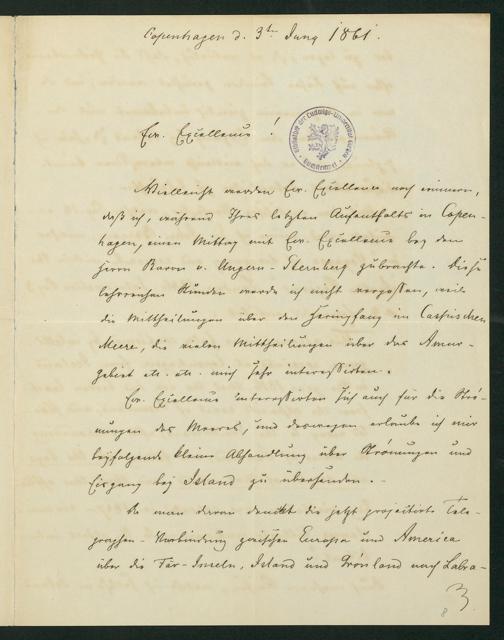 Copenhagen d. 3te Juny 1861.
Ew. Excellence!
Vielleicht werden Ew. Excellence noch erinnern,
daß ich, während Ihres letzten Aufenthalts in Copen-
hagen, einen Mittag mit Ew. Excellence bey dem
Herrn Baron v. Ungern-Sternberg zubrachte. Diese
lehrreichen Stunden werde ich nicht vergessen, weil
die Mittheilungen über den Heringfang im Caspischen
Meere, die vielen Mittheilungen über das Amur-
gebiet etc. etc. mich sehr interessirten.
Ew. Excellence interessirten sich auch für die Strö-
mungen des Meeres, und deswegen erlaube ich mir
beyfolgende kleine Abhandlung über Strömungen und
Eisgang bey Island zu übersenden. -
Da man daran denckt die jetzt projectirte Tele-
graphen-Verbindung zwischen Europa und America
über die Fär-Inseln, Island und Grönland nach Labra-
8